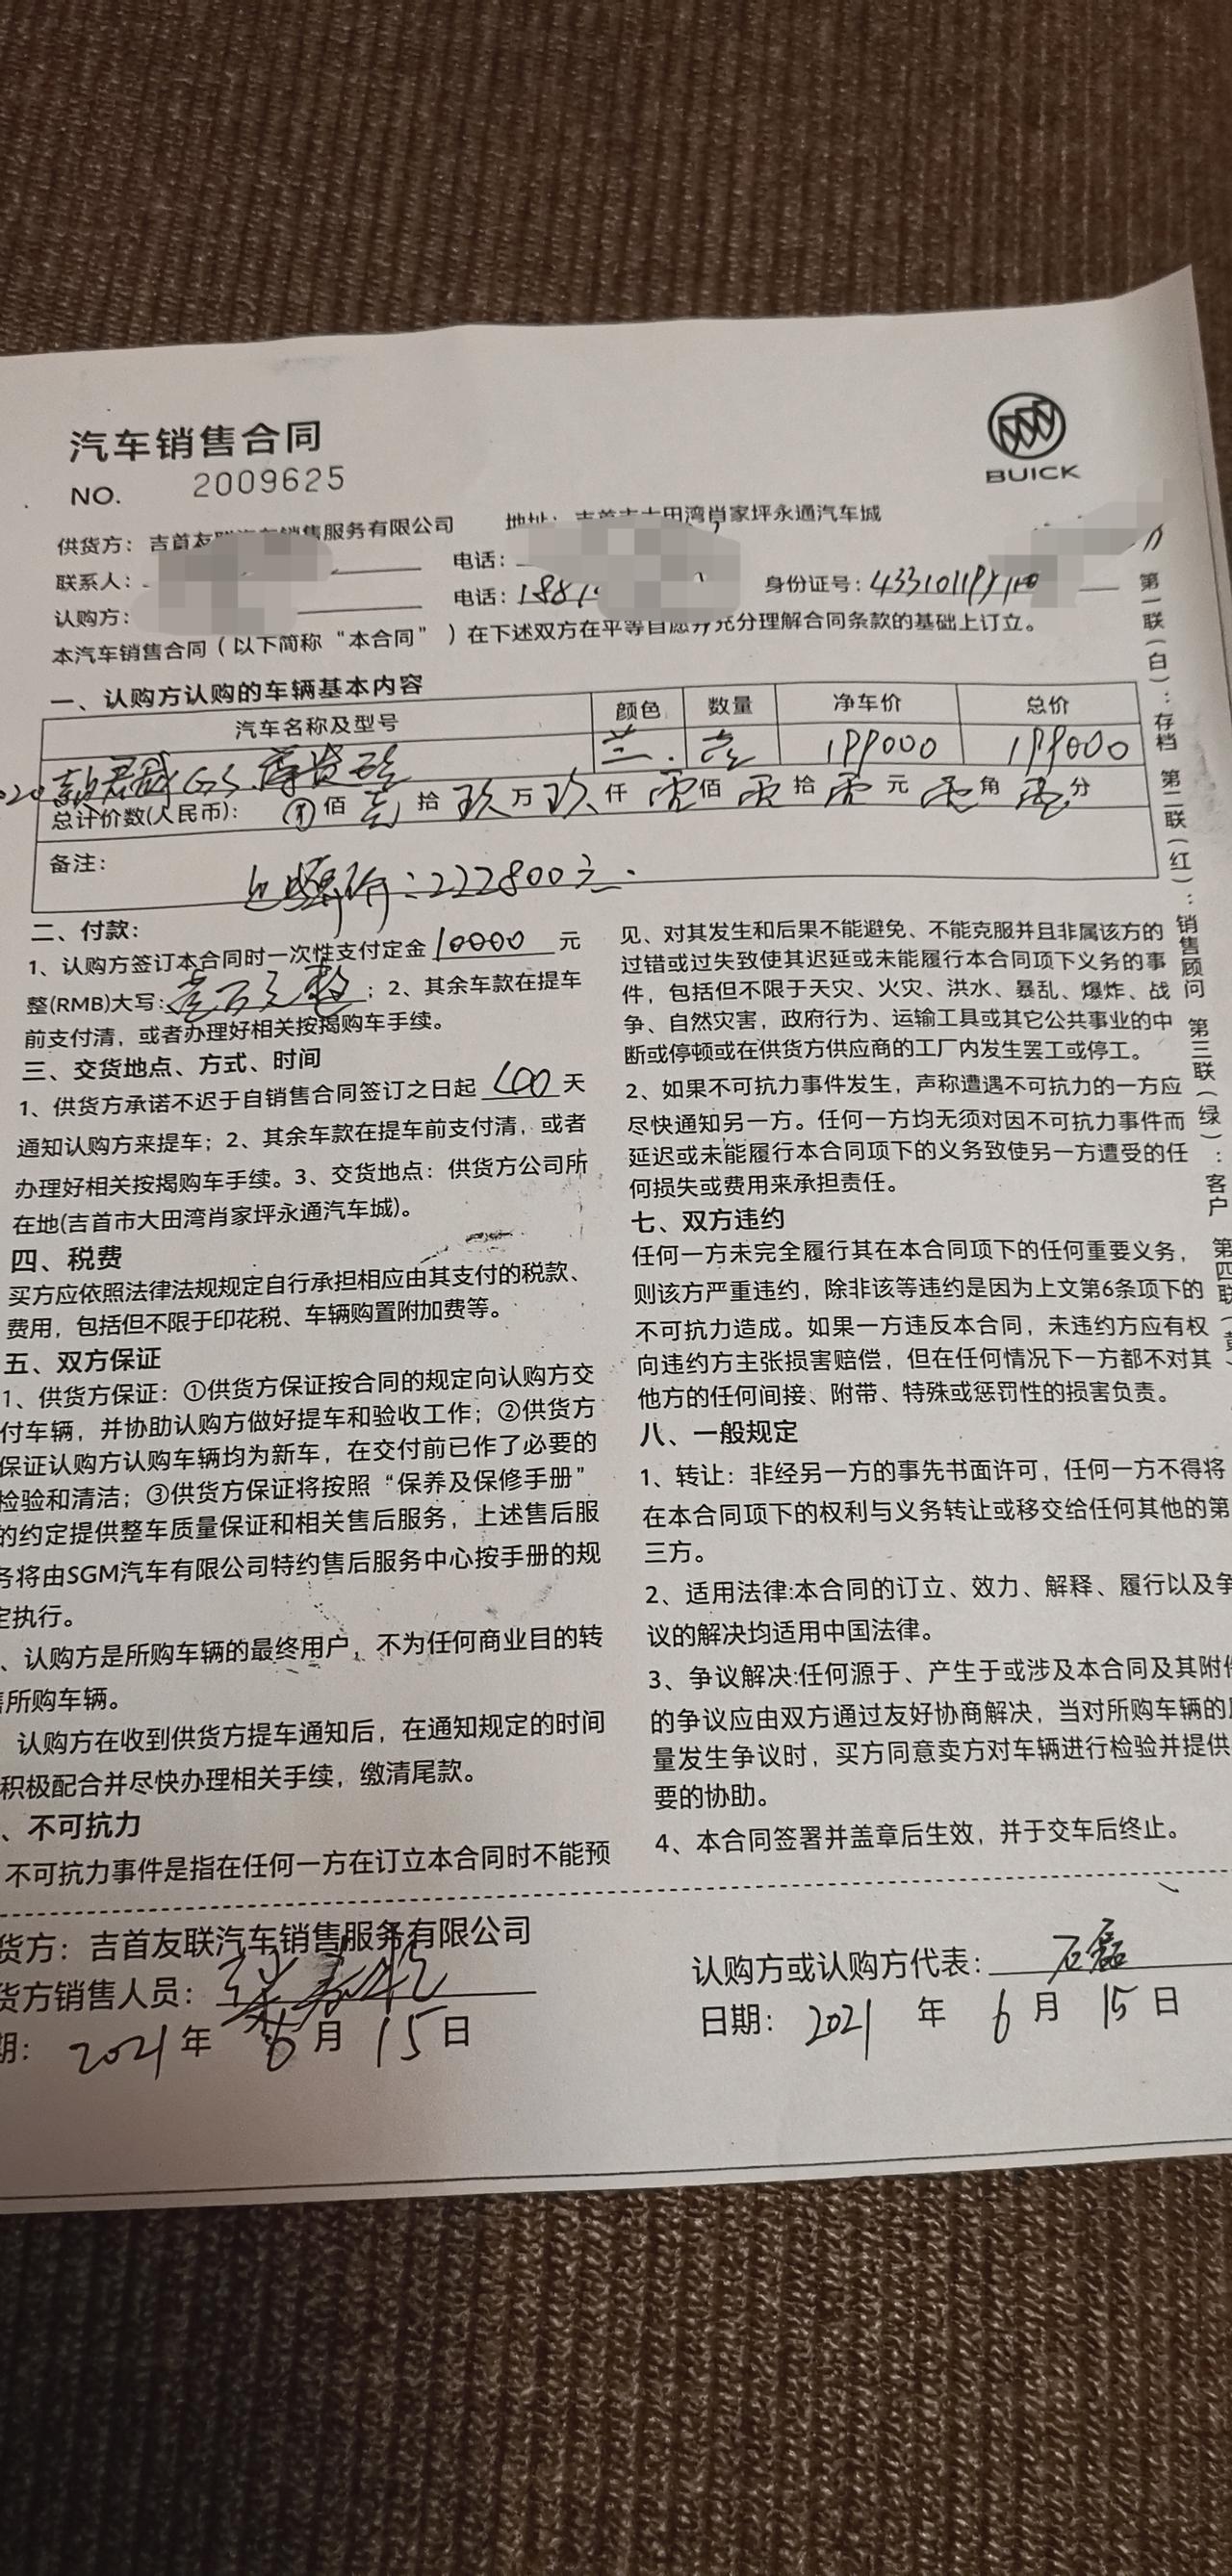 汽车销售合同
BUICK
NO. 2009625
供货方：吉首友联汽车销售服务有限公司 地址：吉首市大田湾肖家坪永通汽车城
联系人： 电话：
认购方： 电话：1881 身份证号：433101199
本汽车销售合同（以下简称“本合同”）在下述双方在平等自愿并充分理解合同条款的基础上订立。
一、认购方认购的车辆基本内容
汽车名称及型号 颜色 数量 净车价 总价
20款君威GS 尊贵型 兰. 壹 199000 199000
总计价数(人民币)： 佰 壹 拾 玖 万 玖 仟 零 佰 零 拾 零 元 零 角 零 分
备注：
包牌价：222800元.
二、付款：
1、认购方签订本合同时一次性支付定金 10000 元
整(RMB)大写：壹万元整；2、其余车款在提车
前支付清，或者办理好相关按揭购车手续。
三、交货地点、方式、时间
1、供货方承诺不迟于自销售合同签订之日起 天
通知认购方来提车；2、其余车款在提车前支付清，或者
办理好相关按揭购车手续。3、交货地点：供货方公司所
在地(吉首市大田湾肖家坪永通汽车城)。
四、税费
买方应依照法律法规规定自行承担相应由其支付的税款、
费用，包括但不限于印花税、车辆购置附加费等。
五、双方保证
1、供货方保证：①供货方保证按合同的规定向认购方交
付车辆，并协助认购方做好提车和验收工作；②供货方
保证认购方认购车辆均为新车，在交付前已作了必要的
检验和清洁；③供货方保证将按照“保养及保修手册”
的约定提供整车质量保证和相关售后服务，上述售后服
务将由SGM汽车有限公司特约售后服务中心按手册的规
定执行。
、认购方是所购车辆的最终用户，不为任何商业目的转
售所购车辆。
认购方在收到供货方提车通知后，在通知规定的时间
积极配合并尽快办理相关手续，缴清尾款。
、不可抗力
不可抗力事件是指在任何一方在订立本合同时不能预
见、对其发生和后果不能避免、不能克服并且非属该方的
过错或过失致使其迟延或未能履行本合同项下义务的事
件，包括但不限于天灾、火灾、洪水、暴乱、爆炸、战
争、自然灾害，政府行为、运输工具或其它公共事业的中
断或停顿或在供货方供应商的工厂内发生罢工或停工。
2、如果不可抗力事件发生，声称遭遇不可抗力的一方应
尽快通知另一方。任何一方均无须对因不可抗力事件而
延迟或未能履行本合同项下的义务致使另一方遭受的任
何损失或费用来承担责任。
七、双方违约
任何一方未完全履行其在本合同项下的任何重要义务，
则该方严重违约，除非该等违约是因为上文第6条项下的
不可抗力造成。如果一方违反本合同，未违约方应有权
向违约方主张损害赔偿，但在任何情况下一方都不对其
他方的任何间接、附带、特殊或惩罚性的损害负责。
八、一般规定
1、转让：非经另一方的事先书面许可，任何一方不得将
在本合同项下的权利与义务转让或移交给任何其他的第
三方。
2、适用法律:本合同的订立、效力、解释、履行以及争
议的解决均适用中国法律。
3、争议解决:任何源于、产生于或涉及本合同及其附件
的争议应由双方通过友好协商解决，当对所购车辆的质
量发生争议时，买方同意卖方对车辆进行检验并提供
要的协助。
4、本合同签署并盖章后生效，并于交车后终止。
第一联(白)：存档 第二联(红)：销售顾问 第三联(绿)：客户 第四联
货方：吉首友联汽车销售服务有限公司
货方销售人员：
期：2021年 6月 15日
认购方或认购方代表：石磊
日期：2021 年 6 月 15 日